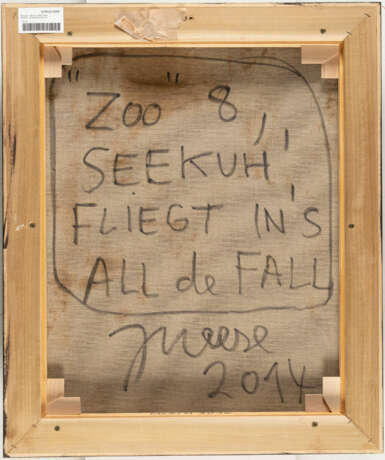 "ZOO" 8,,
SEEKUH,
FLIEGT IN'S
ALL de FALL
JMeese
2014